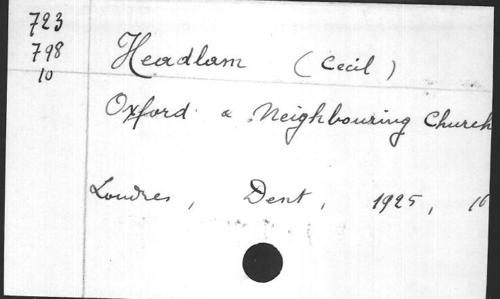 723
798
10
Headlam (Cecil)
Oxford & Neighbouring Church
Londres, Dent, 1925, 16